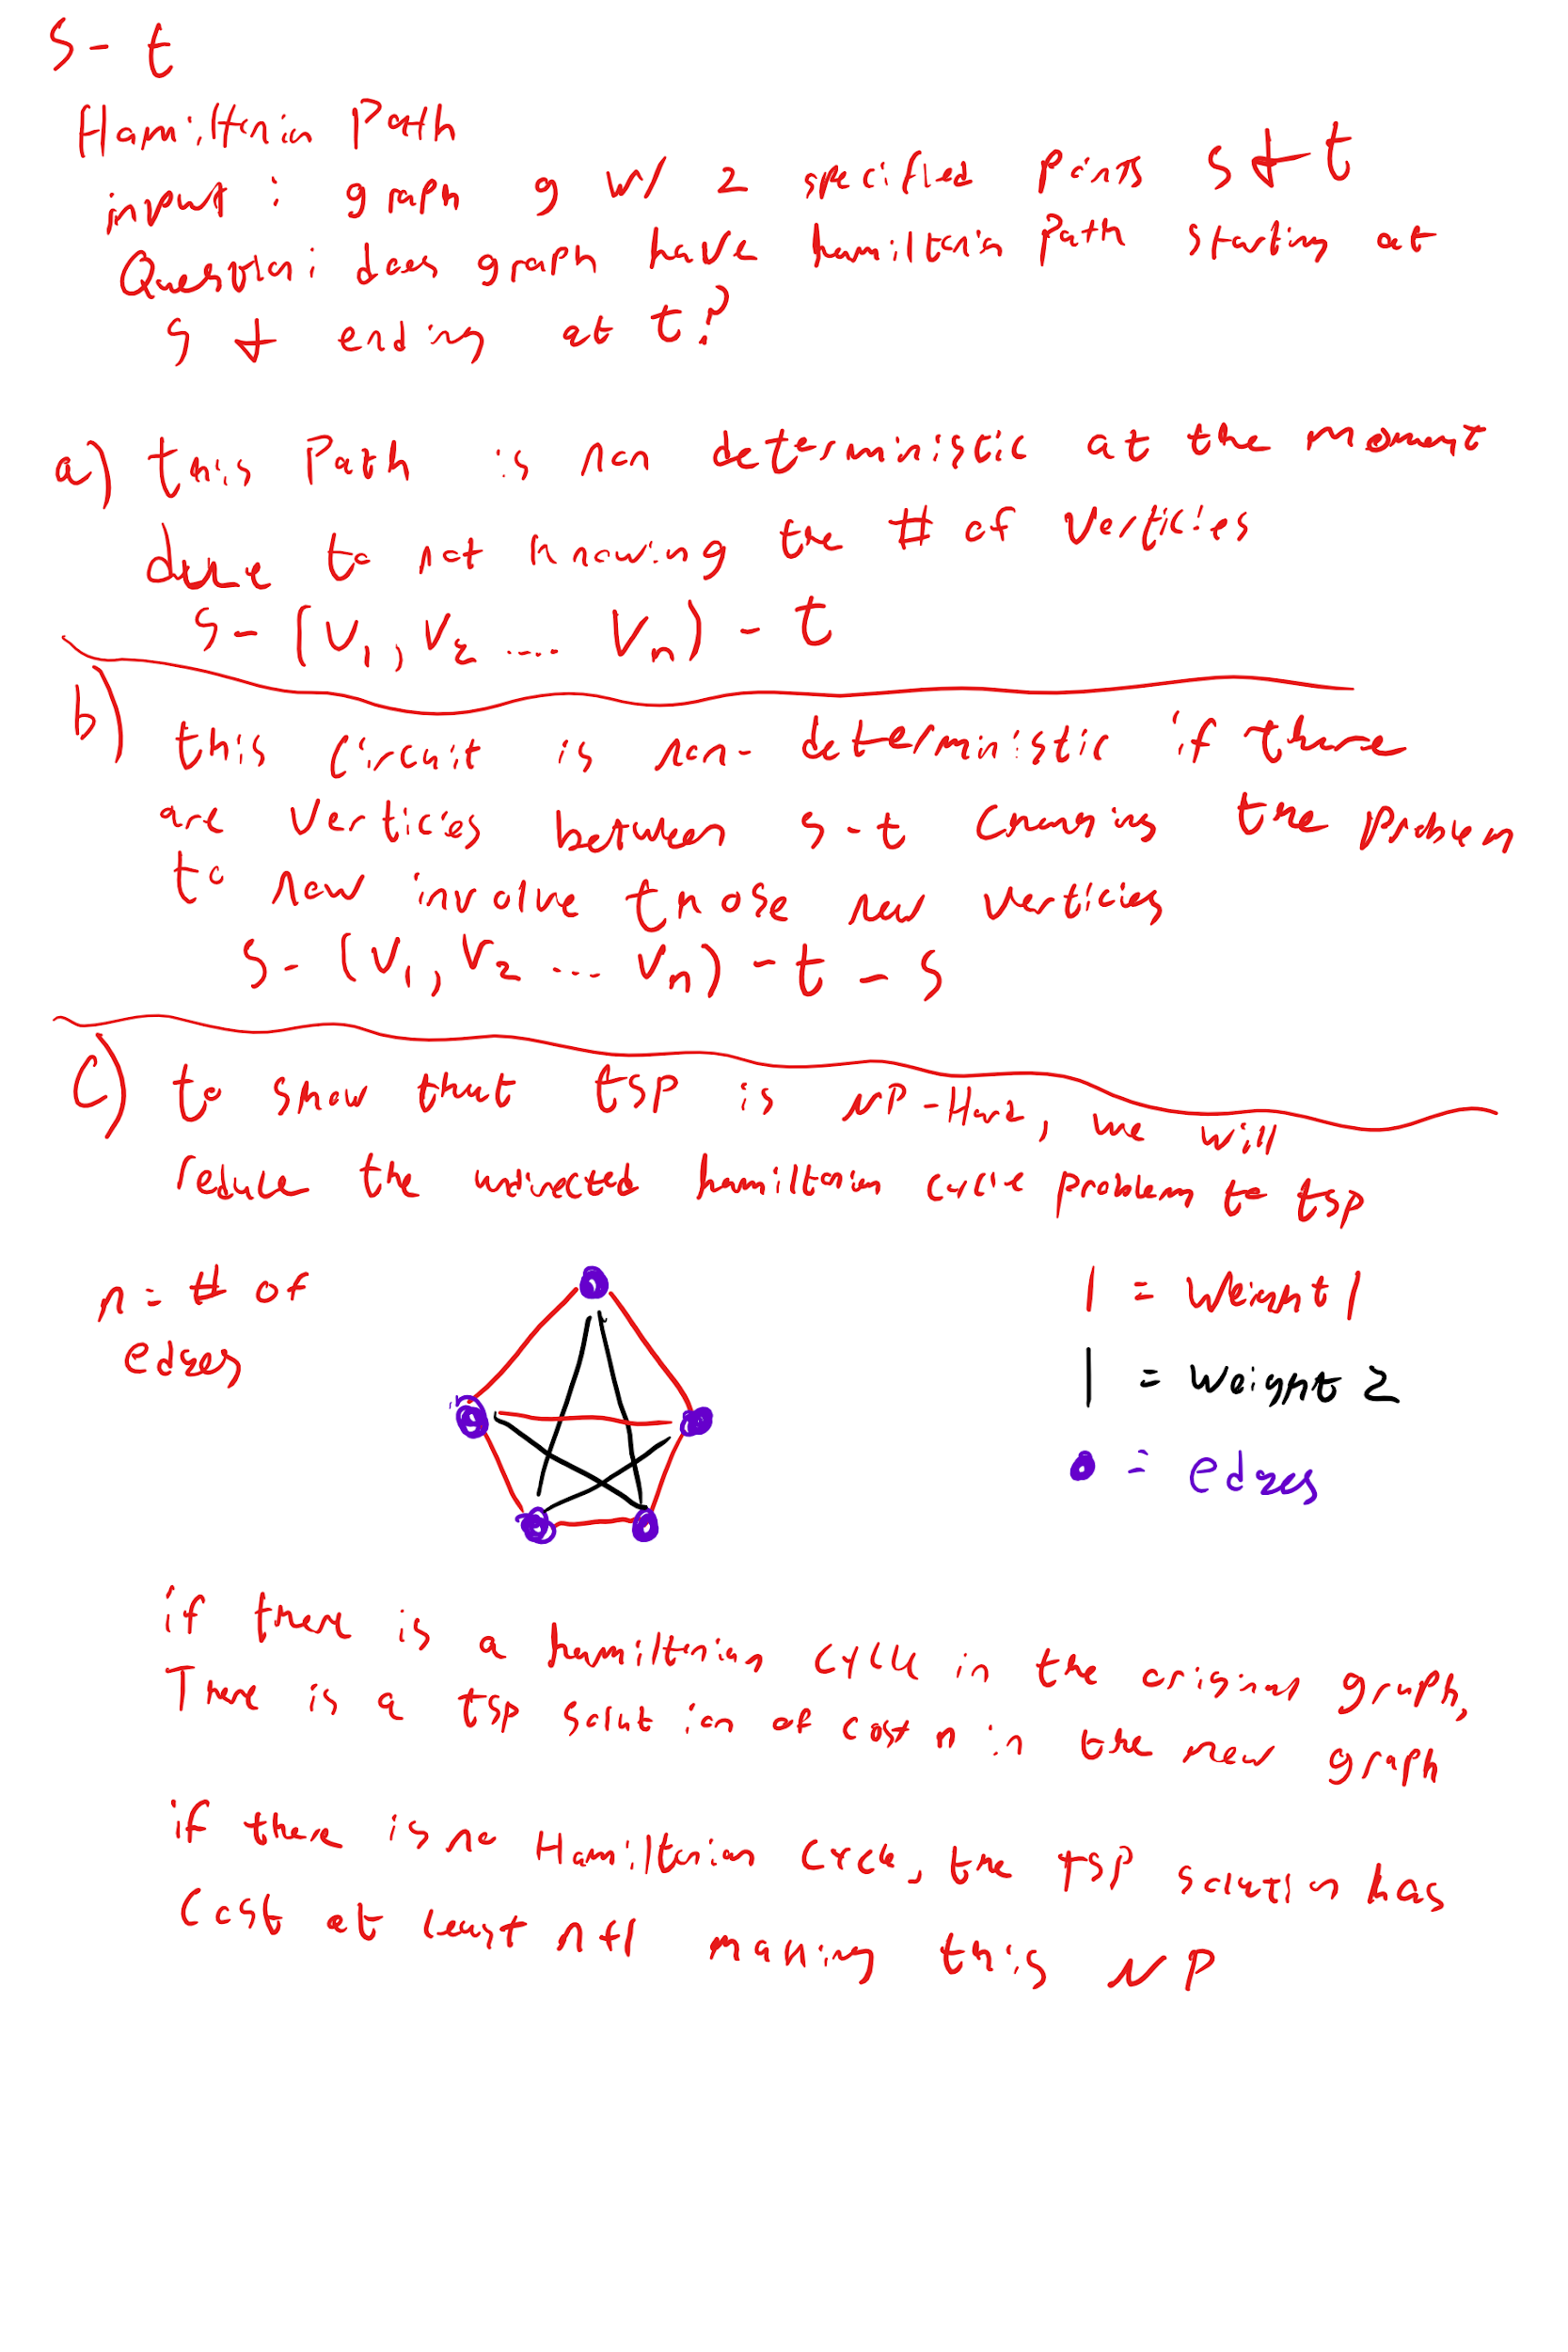 s - t
Hamiltonian Path
input: graph g w/ 2 specified points s + t
Question: does graph have hamiltonin Path starting at
s + ending at t?
a) this Path is non deterministic at the moment
due to not knowing the # of verticies
s - (V1, V2 .... Vn) - t
b) this circuit is non-deterministic if there
are verticies between s-t causing the problem
to now involve those new verticies
s - (V1, V2 ... Vn) - t - s
c) to show that tsp is NP-Hard, we will
reduce the undirected hamiltonian cycle problem to tsp
n = # of
edges
| = weight 1
| = weight 2
= edges
if there is a hamiltonian cycle in the original graph,
There is a tsp solution of cost n in the new graph
if there is no Hamiltonian cycle, the TSP solution has
cost at least n+1 making this NP